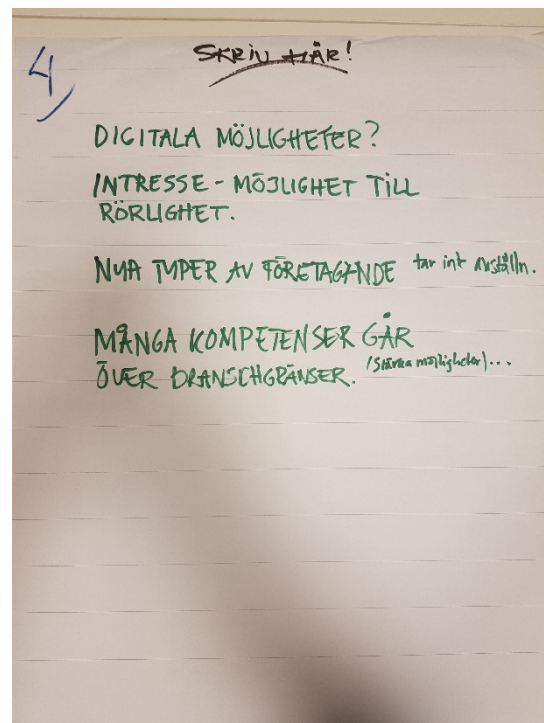 4
SKRIV HÄR!
DIGITALA MÖJLIGHETER?
INTRESSE - MÖJLIGHET TILL
RÖRLIGHET.
NYA TYPER AV FÖRETAGANDE tar int anställn.
MÅNGA KOMPETENSER GÅR
ÖVER BRANSCHGRÄNSER. (Stärka möjligheter)...